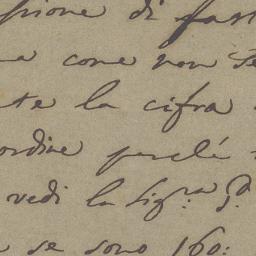 ssione di fast
a come non se
te la cifra
ordine perchè
vedi la Sig.ra S.d
se sono 160: